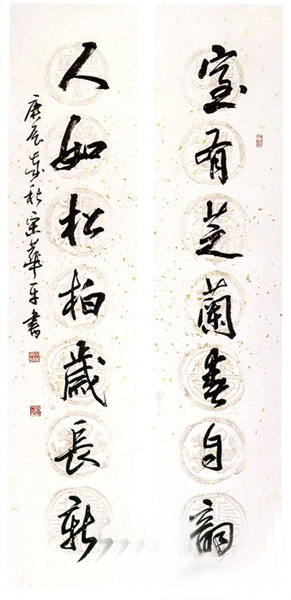 室有芝蘭春自韻
人如松柏歲長新
庚辰歲秋宋華平書